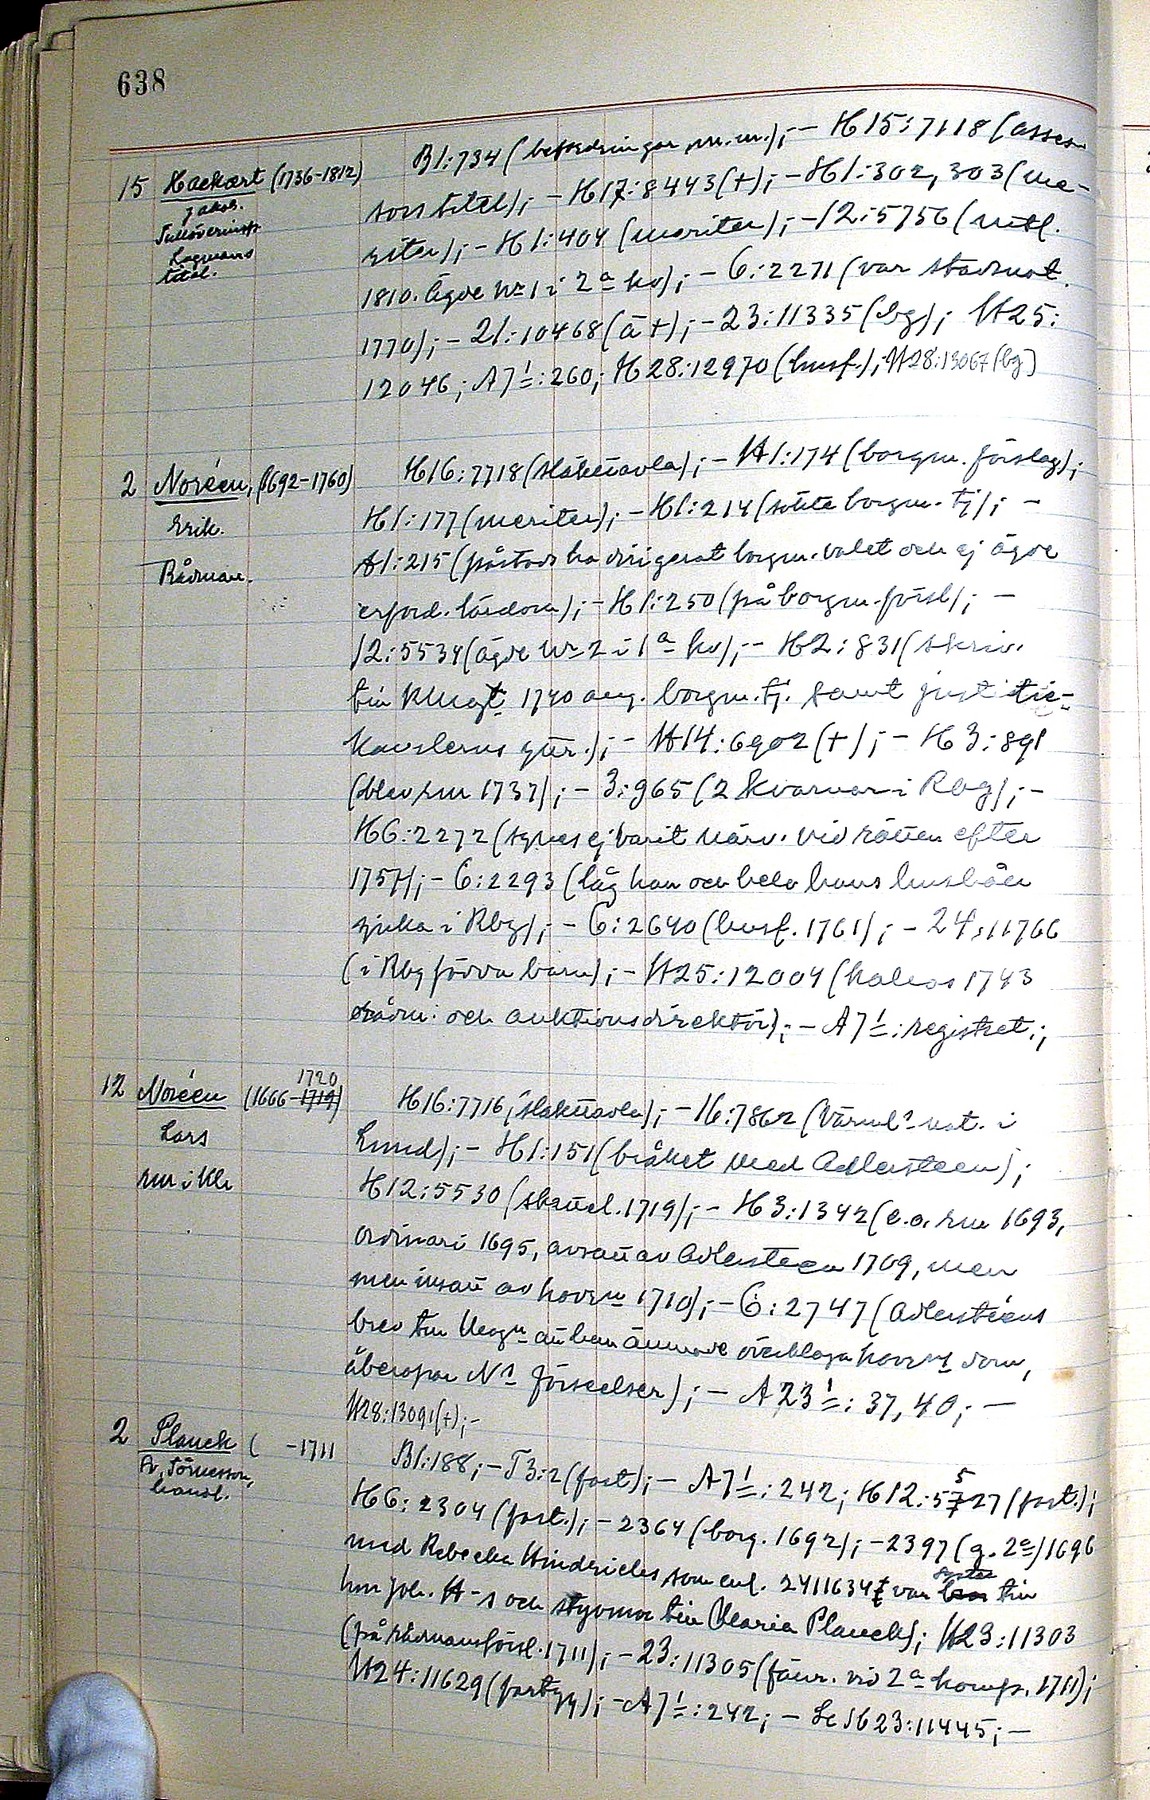 638
15 Hackart (1736-1812)
Jakob.
Tullöverinsp.
Lagmans
titel.
B1:734 (befordringar m.m.); - H15:7118 (asses-
sors titel); - H17:8443 (+); - H1:302, 303 (me-
riter); - H1:404 (meriter); - 12:5756 (mtl.
1810. Ägde Nr 1 i 2a kv); - 6:2271 (var stadsnot.
1770); - 21:10468 (ä +); - 23:11335 (bg); H25:
12046; A71:260; H28:12970 (husf.); H28:13067 (bg)
2 Noréen, (1692-1760)
Erik.
Rådman.
H16:7718 (släkttavla); - H1:174 (borgm. förslag);
H1:177 (meriter); - H1:214 (sökte borgm. tj); -
H1:215 (påstods ha dirigerat borgm. valet och ej ägde
erford. lärdom); - H1:250 (på borgm. försl); -
12:5534 (ägde Nr 2 i 1a kv); - H2:831 (skriv.
till KMajt 1740 ang. borgm. tj. samt justitie-
kanslerns yttr.); - H14:6902 (+); - H3:891
(blev rm 1737); - 3:965 (2 kvarnar i Rbg); -
H6:2272 (synes ej varit närv. vid rätten efter
1757); - 6:2293 (låg han och hela hans hushåll
sjuka i Rbg); - 6:2640 (husf. 1761); - 24:11766
(i Rbg förra barn); - H25:12004 (kallas 1743
rådm. och auktionsdirektör); - A71: registret;
12 Noréen (1666-1719) 1720
Lars
rm i Kh
H16:7716, släkttavla); - 16:7862 (Värml. nat. i
Lund); - H1:151 (bråket med Adlersteen);
H12:5530 (skattel. 1719); - H3:1342 (e.o. rm 1693,
ordinari 1695, avsatt av Adlersteen 1709, men
men insatt av hovrn 1710); - 6:2747 (Adlersteens
brev till Magn att han ämnade överklaga hovrns dom,
åberopar Ns förseelser); - A231:37, 40; -
H28:13091 (+); -
2 Planck ( -1711
handl.
B1:188; - T3:2 (fast); - A71:242; H12:5727 5 (fast.);
H6:2304 (fast.); - 2364 (borg. 1692); - 2397 (g. 2a) 1696
med Rebecka Hindricles som enl. 2411634 var bror syster till
hm Joh. H-s och styvmor till Maria Planck); H23:11303
(på rådmansförsl. 1711); - 23:11305 (fänr. vid 2a komp. 1711);
H24:11629 (fartyg); - A71:242; - Se H23:11445; -